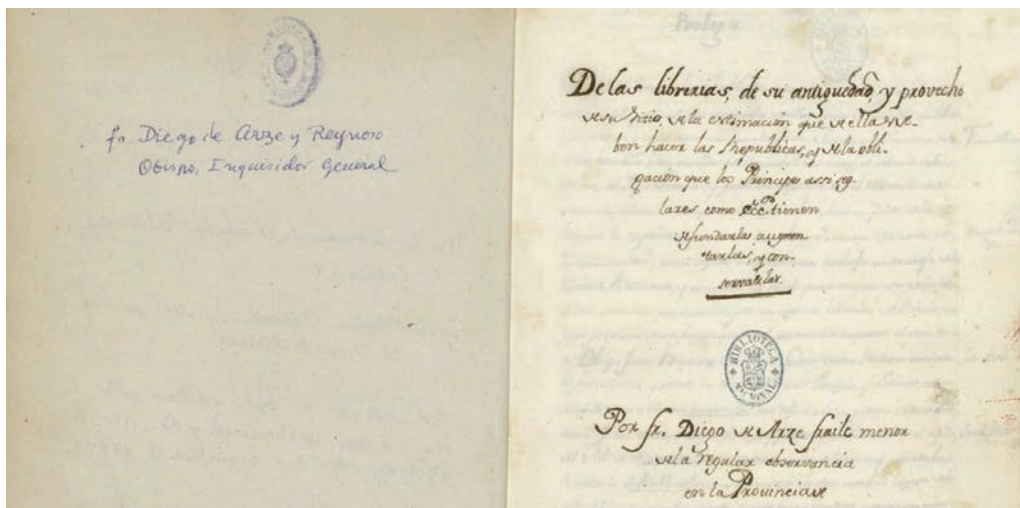 fr. Diego de Arze y Reynoso
Obispo, Inquisidor General
Prologo
De las librerias, de su antiguedad, y provecho
de su sitio, de la estimacion que de ellas de-
bon hacer las Republicas, y de la obli-
gacion que los Principes assi seg-
lares como Ecc. tienen
de fundarlas augmen-
tarlas, y con-
servarlas.
BIBLIOTECA
NACIONAL
Por fr. Diego de Arze fraile menor
de la regular observancia
en la Provincia de